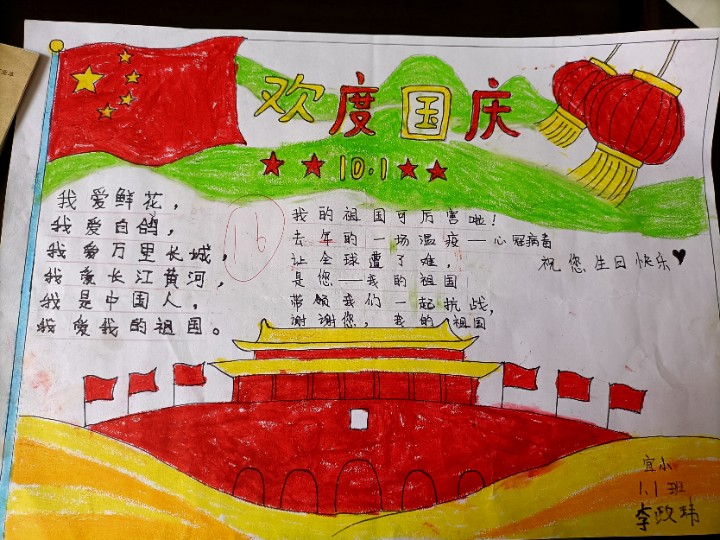 欢度国庆
10.1
我爱鲜花，
我爱白鸽，
我爱万里长城，
我爱长江黄河，
我是中国人，
我爱我的祖国。
16
我的祖国可厉害啦！
去年的一场温疫——心冠病毒
让全球遭了难，
是您——我的祖国
带领我们一起抗战，
谢谢您，我的祖国
祝您生日快乐
宜小
1.1班
李政玮